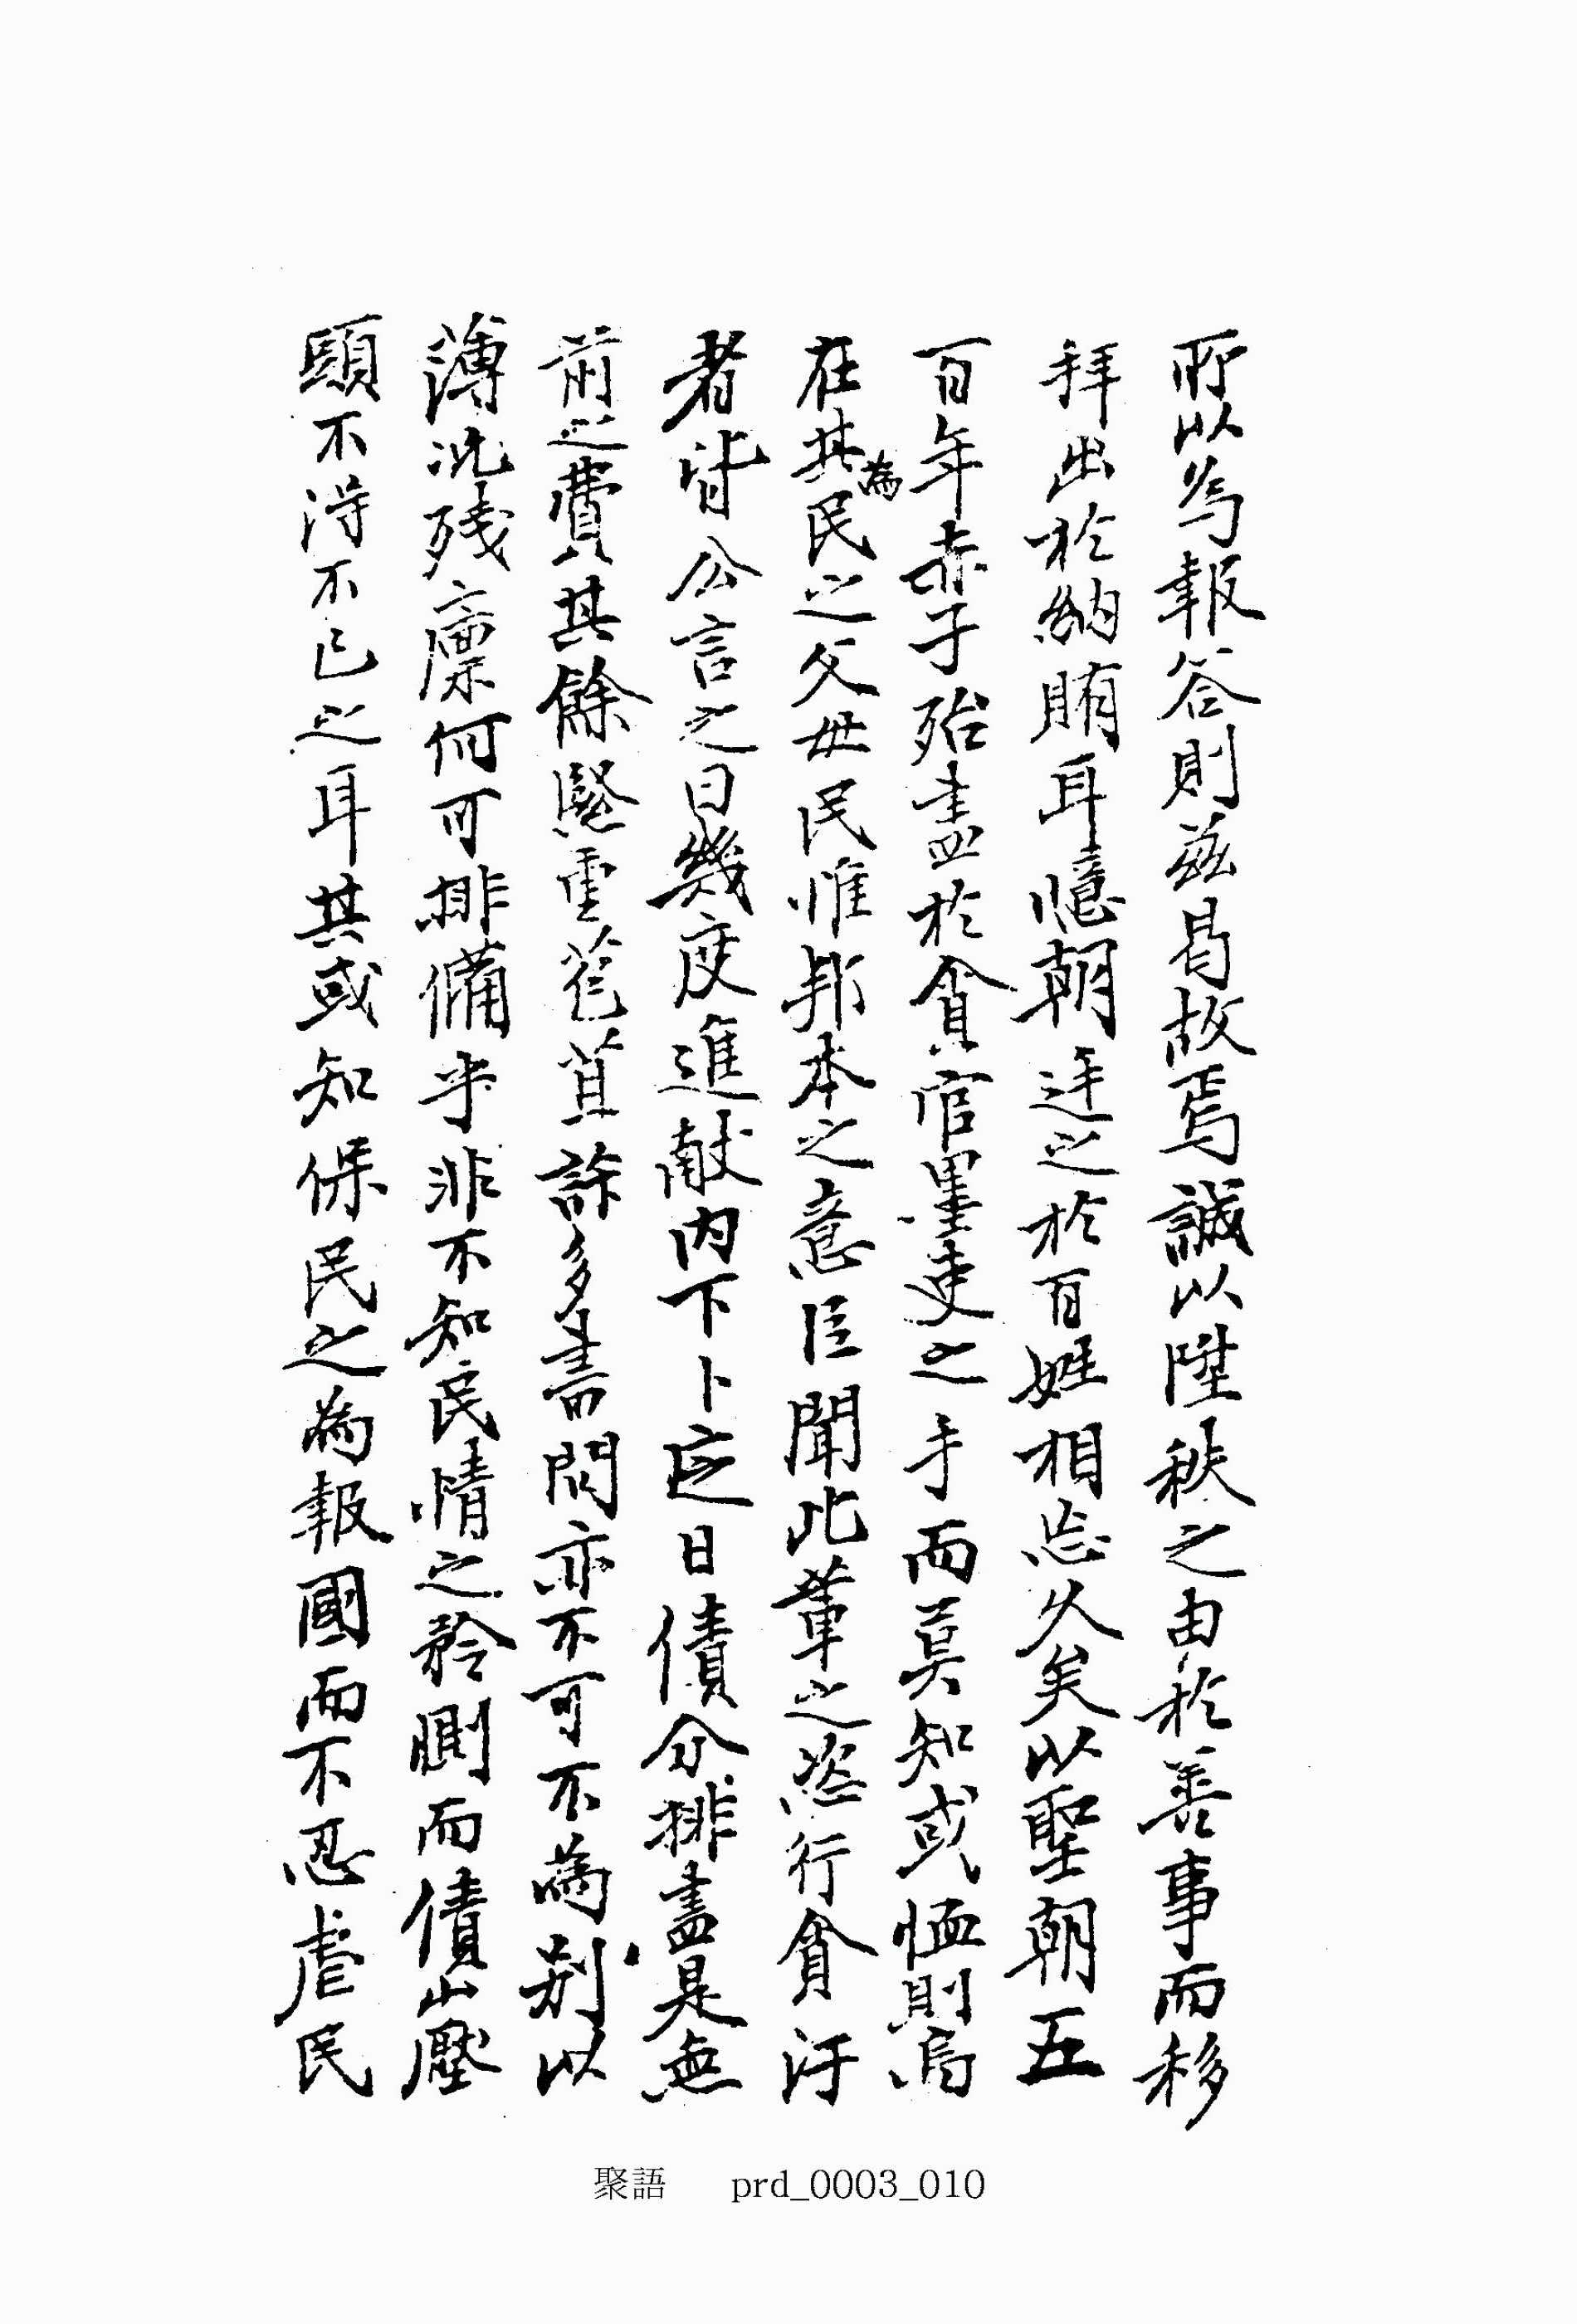 所以為報答則茲曷故焉誠以陞秩之由於善事而移
拜出於納賄耳噫朝廷之於百姓相忘久矣以聖朝五
百年赤子殆盡於貪官墨吏之手而莫知或恤則烏
在其為民之父母民惟邦本之意臣聞此輩之恣行貪汙
者皆公言之曰幾度進献内下卜定日債分排盡是無
前之費其餘緊重苞苴許多書問亦不可不為別以
薄況残廩何可排備乎非不知民情之矜惻而債山壓
頭不得不已之耳其或知保民之為報國而不忍虐民
聚語 prd_0003_010